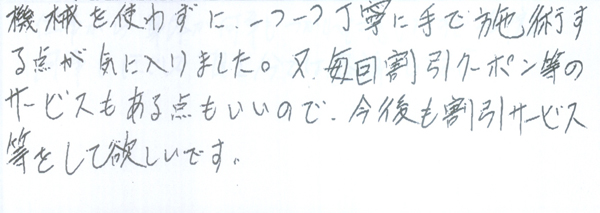 機械を使わずに、一つ一つ丁寧に手で施術す
る点が気に入りました。又、毎回割引クーポン等の
サービスもある点もいいので、今後も割引サービス
等をして欲しいです。